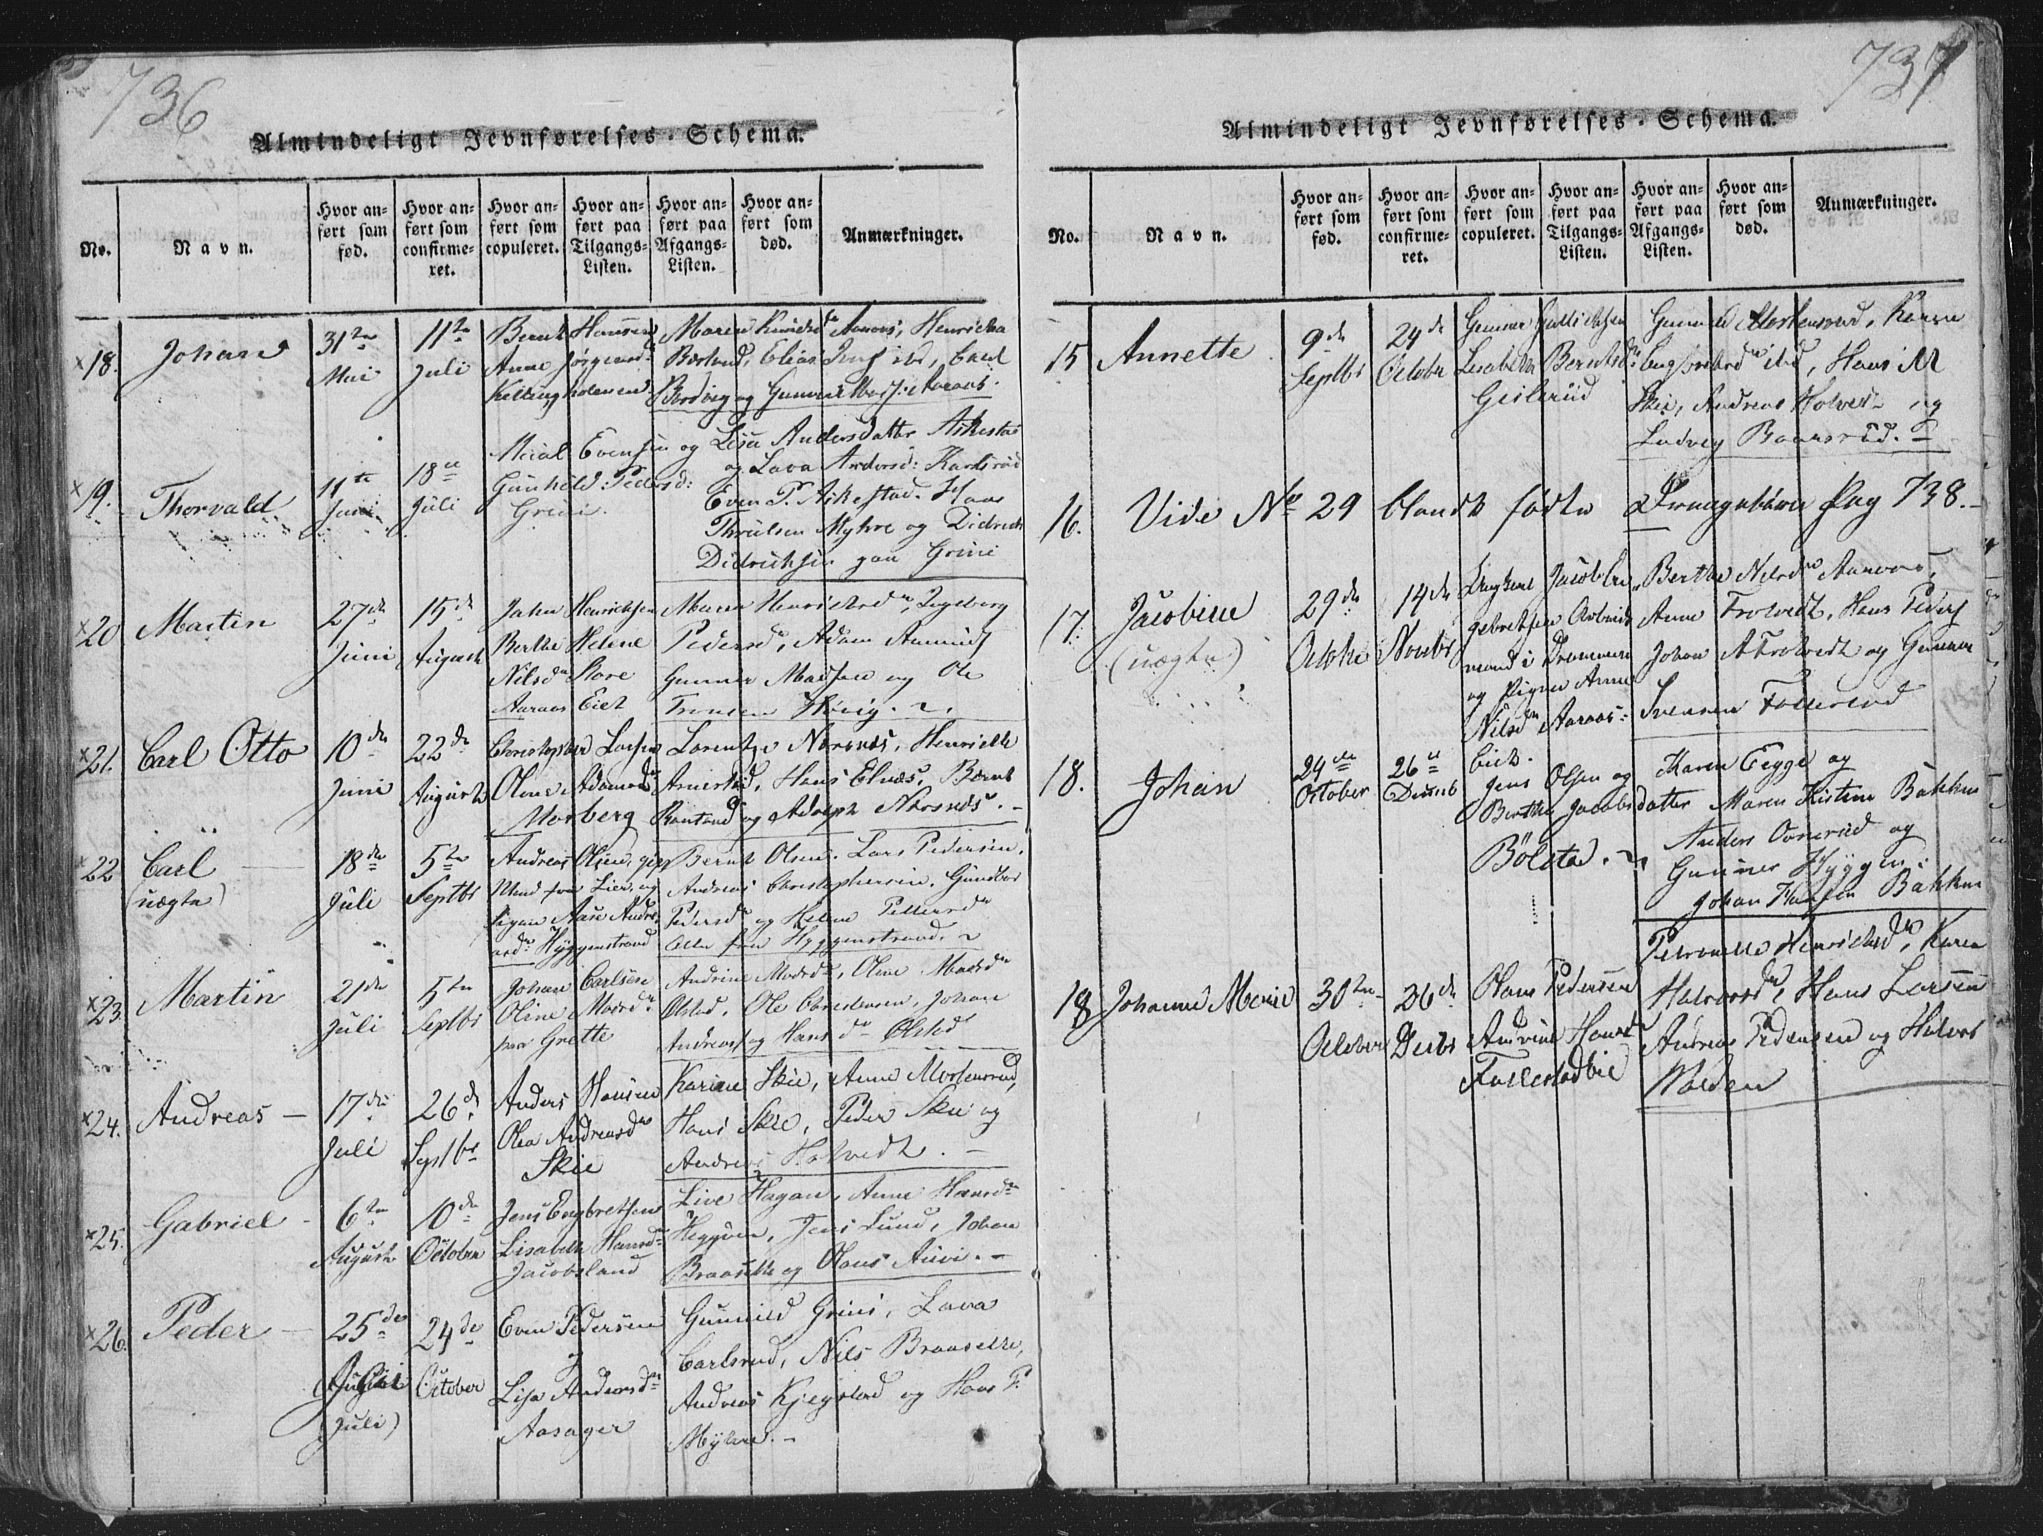 736
Almindeligt Jevnførelses-Schema.
No.
Navn.
Hvor anført som fød.
Hvor anført som confirmeret.
Hvor anført som copuleret.
Hvor anført paa Tilgangs-Listen.
Hvor anført paa Afgangs-Listen.
Hvor anført som død.
Anmærkninger.
18. Johan 31te Mai 11te Juli
Bernt Hansen
Anne
Maren Aaraas, Henrikka
og Gunnar Aaraas.
19. Thorvald 11te Juni 18de Juli
Evensen og
Gunhild Pedersd:
Greni.
Lisa Andersdatter Askestad
og Lava Andersd: Karlsrud
Even P. Askestad. Hans
Myhre og Didrich
Didrichsen paa Grini
20 Martin 27de Juni 15de August
John Henrichsen
Berthe Helene
Nilsd. Store
Aaraas Eiet
Maren Henrichsd., Ingeborg
Pedersd., Adam
Gunner Madsen og Ole
Høvig.
21. Carl Otto 10de Juni 22de August
Christopher Larsen
Oline Adamsd.
Morberg
Lorentze Nærsnæs, Henrikke
Arnestad, Hans Elnæs, Bernt
og Adolph Nærsnæs.
22 Carl (uægte) 18de Juli 5te Septbr
Andreas Olsen, gift
Mand fra Lier, og
Pigen Aase Andreasd. Hyggenstrand
Bernt Olsen. Lars Pedersen,
Andreas Christophersen. Gundbor
Pedersd. og Helene Pettersd.
alle fra Hyggenstrand.
23. Martin 21de Juli 5te Septbr
Johan Carlsen
Oline Madsd.
paa Grette
Andrine Madsd., Oline Madsd.
Ølstad, Ole Christensen, Johan
Andreas og Hans do Ølstad
24. Andreas 17de Juli 26de Septbr
Anders Hansen
Olea Andreasd.
Skie
Karine Skie, Anne Mortensrud,
Hans Skie, Peder Skie og
Andreas Holvedt.
25. Gabriel 6te August 10de October
Jens Engbretsen
Lisabeth Hansd.
Jacobsland
Live Hagan, Anne Hansd.
Heggven, Jens Lund, Johan
Braasette og Olaus
26. Peder 25de
(Juli)
24de October
Even Pedersen
og
Lisa Andersd.
Aasager
Gunnild Grini, Lava
Carlsrud, Nils Braasette,
Andreas Kjegstad og Hans P.
Myhre.
737
Almindeligt Jevnførelses-Schema.
No.
Navn.
Hvor anført som fød.
Hvor anført som confirmeret.
Hvor anført som copuleret.
Hvor anført paa Tilgangs-Listen.
Hvor anført paa Afgangs-Listen.
Hvor anført som død.
Anmærkninger.
15 Annette 9de Septbr 24de October
Gunner Gullichsen
Lisabeth Berntsd.
Geisterud
Gunnild Mortensrud, Karen
ibd, Hans M
Skie, Andreas Holvedt og
Ludvig Baarsrud.
16. Vide No 29 blandt fødte Drengebørn Pag 738.
17. Jacobine (uægte) 29de Octbr 14de Novbr
Ungkarl Jacob Engebretsen Arbeidsmand i Drammen
og Pigen Anne
Nilsd. Aaraas-
eiet.
Berthe Nilsd. Aaraas,
Anne Frotvedt, Hans Peders
Johan A Frotvedt og Gunner
Svensen Follestad
18. Johan 24de October 26de Decemb
Jens Olsen og
Berthe Jacobsdatter
Bölstad.
Maren Hegge og
Maren Kistine Bakken
Anders Ovnerud og
Gunner Hyggen.
Johan Hansen Bakken
18 Johanne Marie 30te October 26de Decbr
Olaus Pedersen
Andrine Hansd.
Follestadeie
Petronelle Henrichsd., Karen
Halvorsd., Hans Larsen
Andreas Pedersen og Halvor
Wolden